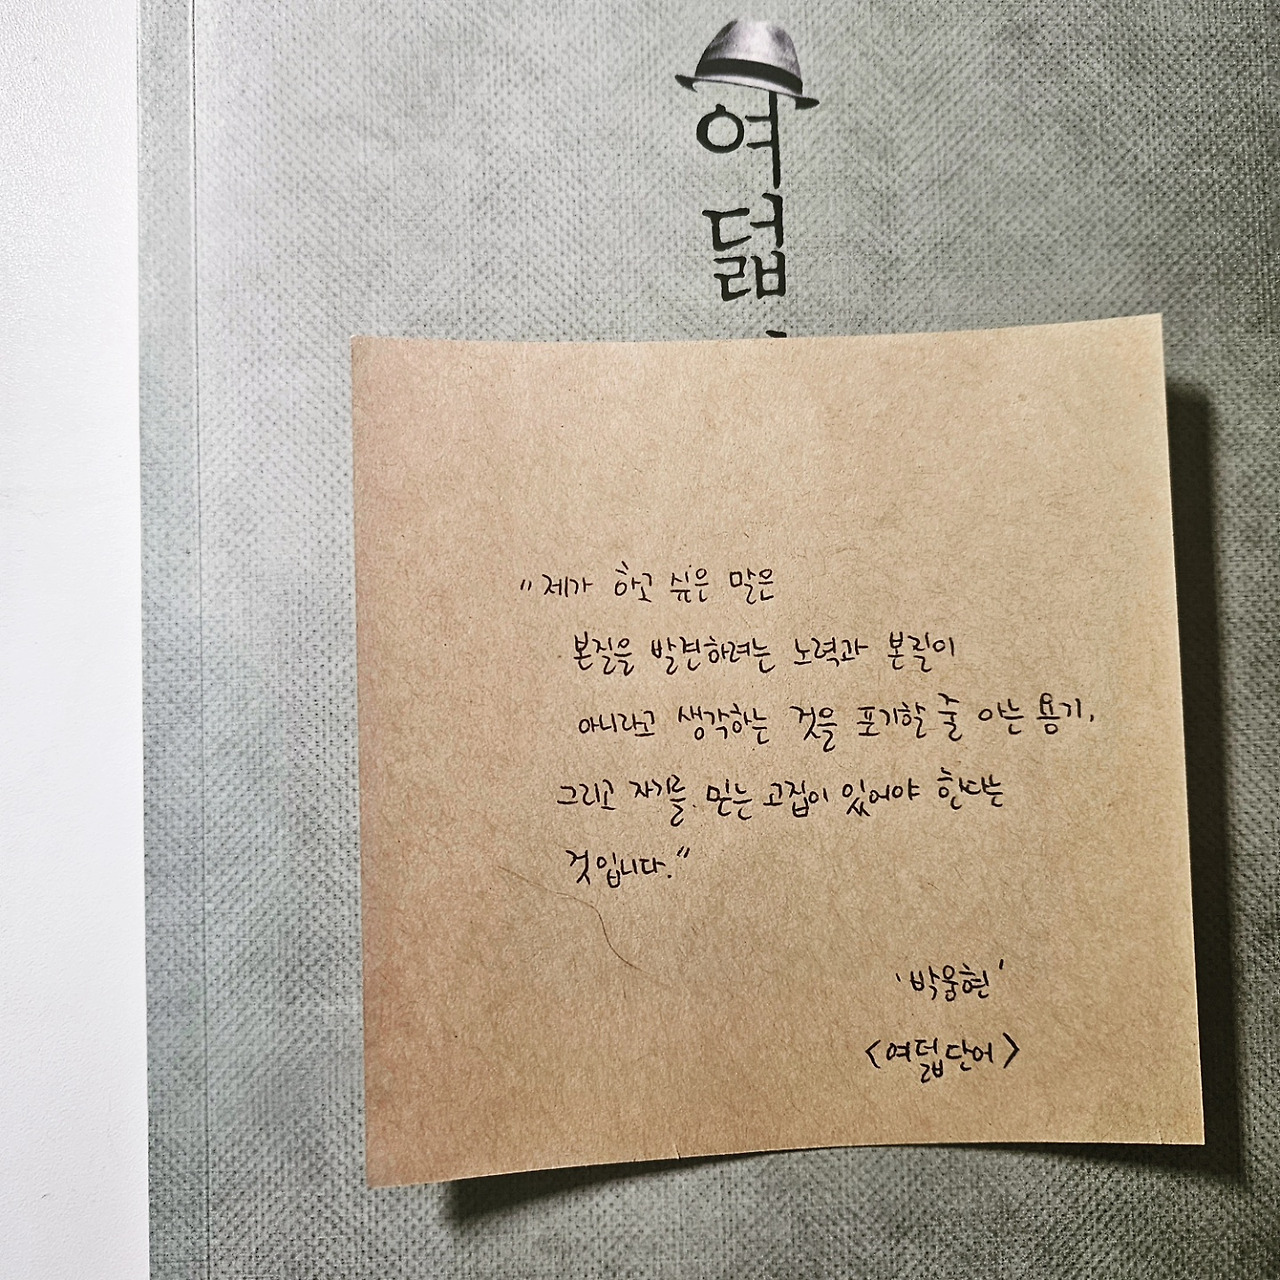 여
덟
"제가 하고 싶은 말은
본질을 발견하려는 노력과 본질이
아니라고 생각하는 것을 포기할 줄 아는 용기,
그리고 자기를 믿는 고집이 있어야 한다는
것입니다."
'박웅현'
<여덟단어>